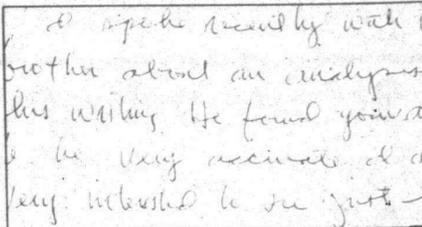 I spoke recently with
brother about an analysis
his writing He found your
be very accurate I
very interested to see just